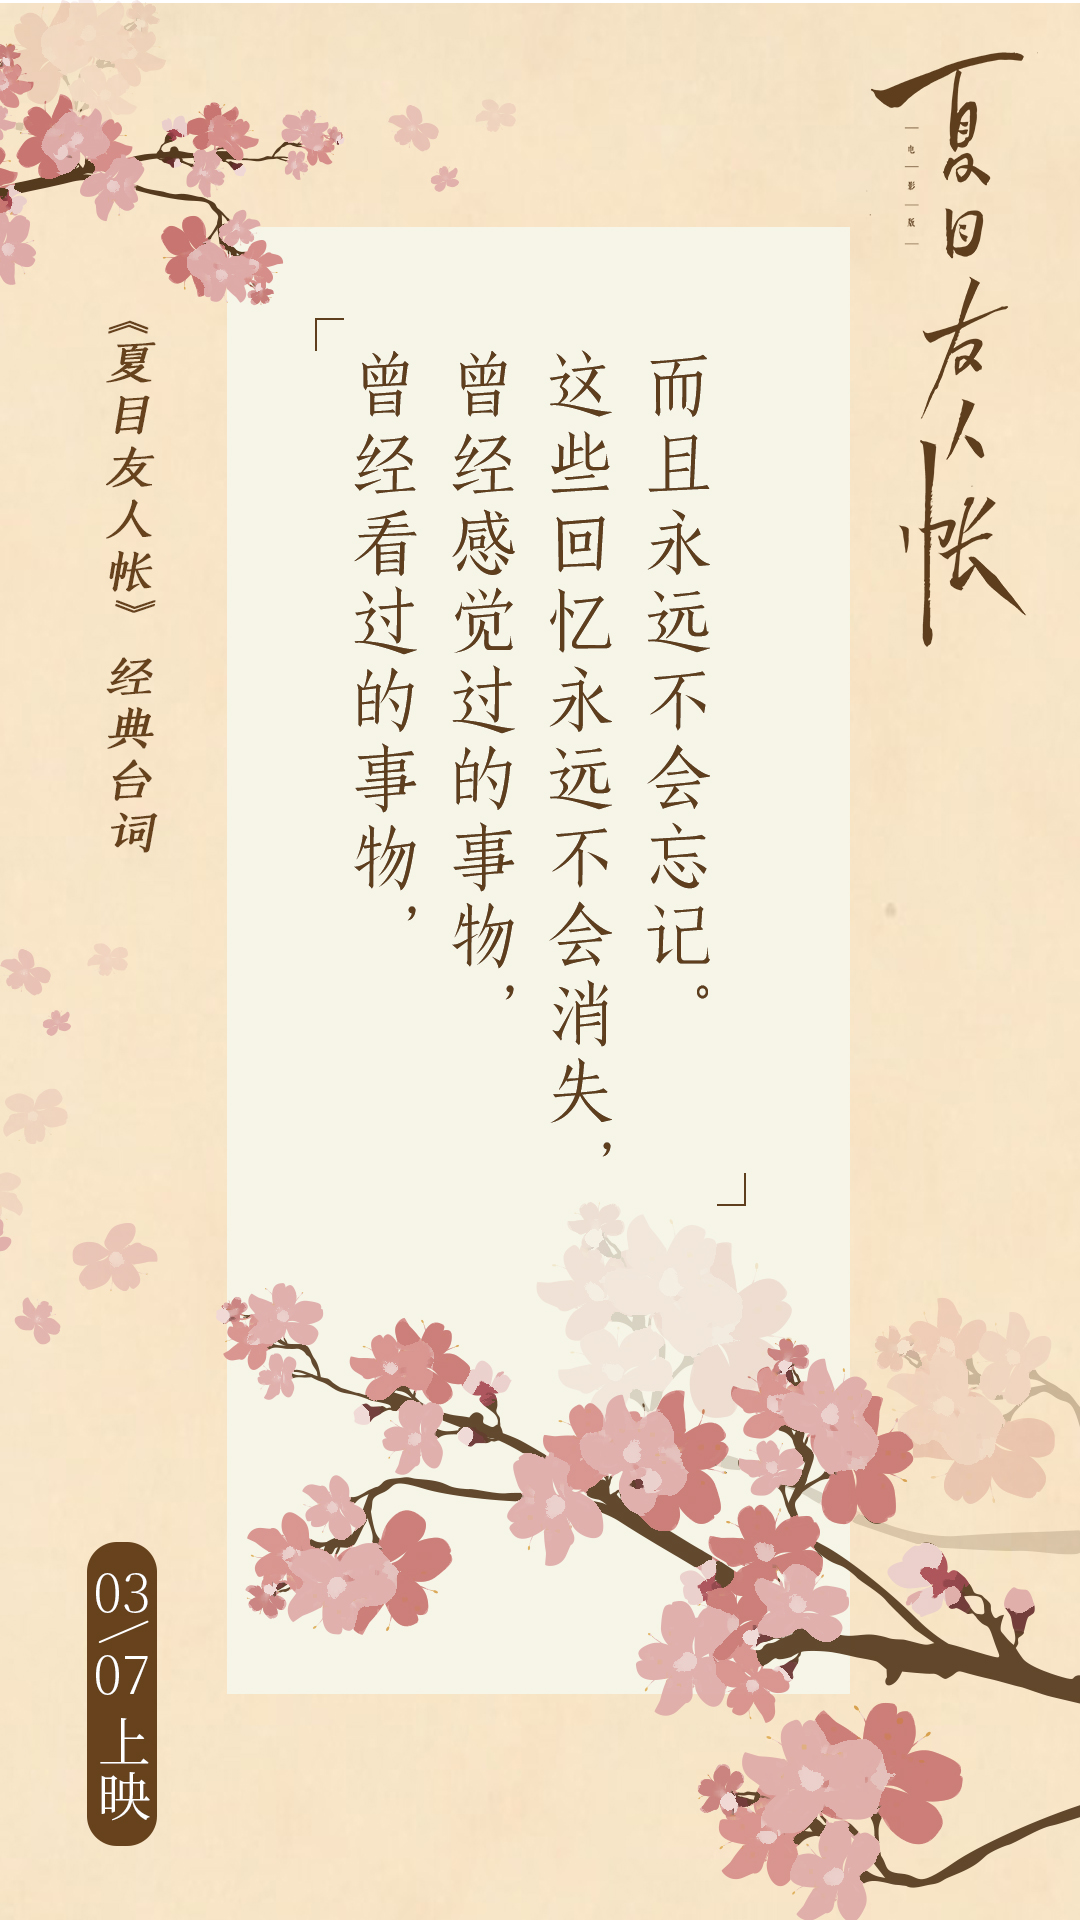 夏目友人帐
电影版
《夏目友人帐》 经典台词
「曾经看过的事物，
曾经感觉过的事物，
这些回忆永远不会消失，
而且永远不会忘记。」
03/07上映